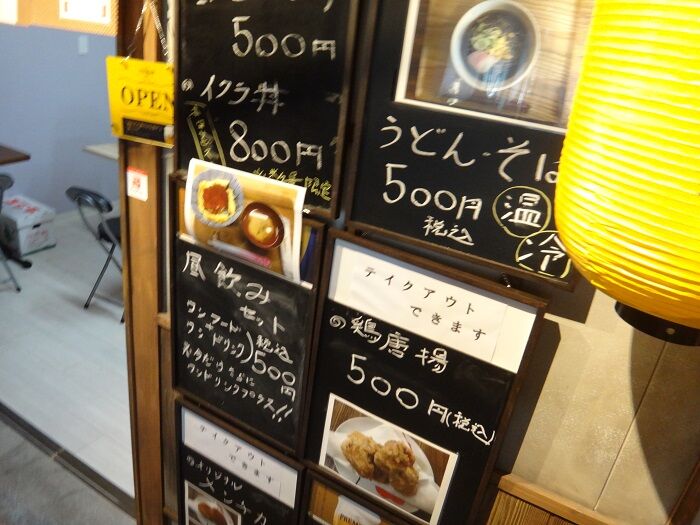 500円
イクラ丼
800円
限定
OPEN
うどん・そば
500円
税込
温
冷
昼飲み
セット
ワンフード
ワンドリンク
税込
500円
ワンドリンクプラス!!
テイクアウト
できます
の鶏唐揚
500円(税込)
テイクアウト
できます
オリジナル
メンチカ
PREM